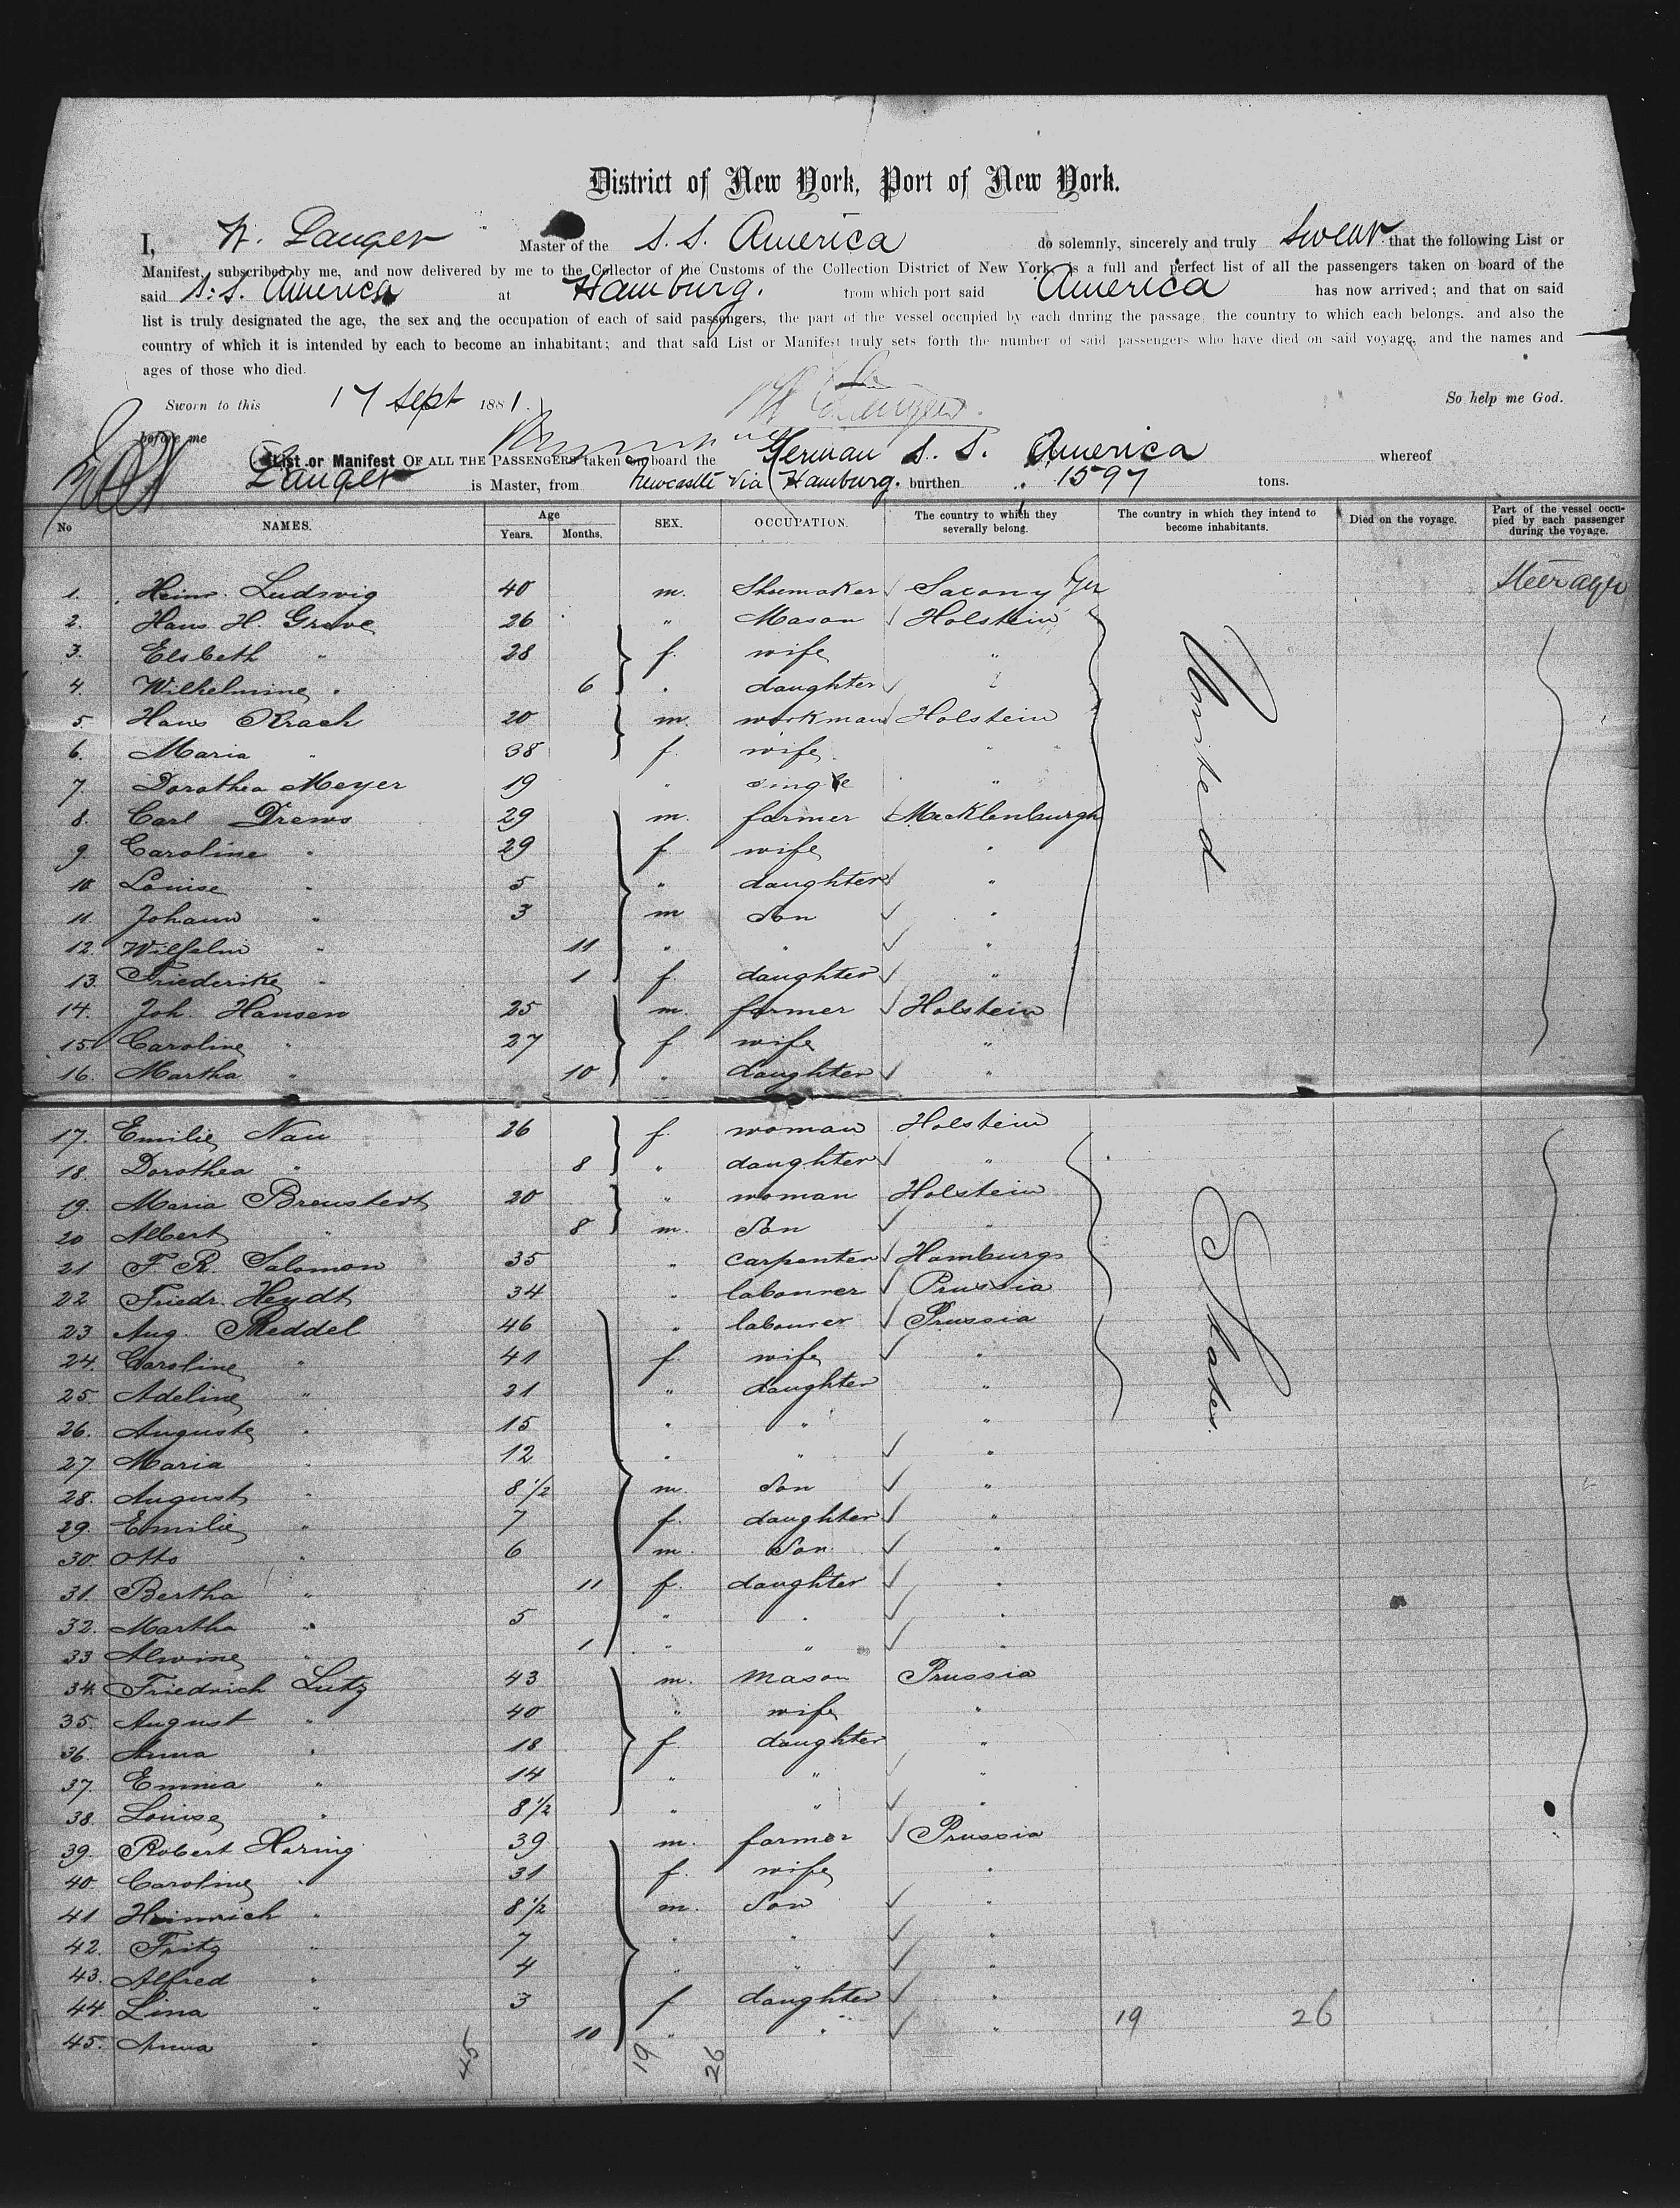 District of New York, Port of New York.
I, W. Langer Master of the S. S. America do solemnly, sincerely and truly swear that the following List or
Manifest, subscribed by me, and now delivered by me to the Collector of the Customs of the Collection District of New York, is a full and perfect list of all the passengers taken on board of the
said S. S. America at Hamburg. from which port said America has now arrived; and that on said
list is truly designated the age, the sex and the occupation of each of said passengers, the part of the vessel occupied by each during the passage, the country to which each belongs. and also the
country of which it is intended by each to become an inhabitant; and that said List or Manifest truly sets forth the number of said passengers who have died on said voyage, and the names and
ages of those who died.
Sworn to this 17 Sept 1881. W Langer. So help me God.
before me
List or Manifest OF ALL THE PASSENGERS taken on board the German S. S. America whereof
Langer is Master, from Newcastle via Hamburg. burthen 1597 tons.
No NAMES. Age Years. Months. SEX. OCCUPATION. The country to which they severally belong. The country in which they intend to become inhabitants. Died on the voyage. Part of the vessel occupied by each passenger during the voyage.
1. Heinr. Ludsvig 40 m. Shoemaker Saxony Ger Steerage
2. Hans H. Grave 26 " Mason Holstein
3. Elsbeth " 28 f. wife "
4. Wilhelmine " 6 " daughter "
5. Hans Krach 20 m. workman Holstein
6. Maria " 38 f. wife "
7. Dorothea Meyer 19 " single "
8. Carl Drews 29 m. farmer Mecklenburgh
9. Caroline " 29 f wife "
10. Louise " 5 " daughter "
11. Johann " 3 m son "
12. Wilhelm " 11 " " "
13. Friederike " 1 f. daughter "
14. Joh. Hansen 25 m. farmer Holstein
15. Caroline " 27 f wife "
16. Martha " 10 " daughter "
United
17. Emilie Nau 26 f. woman Holstein
18. Dorothea " 8 " daughter "
19. Maria Breustedt 20 " woman Holstein
20 Albert " 8 m. Son "
21 F. R. Salomon 35 " carpenter Hamburgs
22 Friedr. Heydt 34 " labourer Prussia
23 Aug. Reddel 46 " labourer Prussia
24. Caroline " 41 f. wife "
25. Adeline " 21 " daughter "
26. Auguste " 15 " " "
27 Maria " 12 " " "
28. August " 8 1/2 m. Son "
29. Emilie " 7 f. daughter "
30. Otto " 6 m. Son "
31. Bertha " 11 f. daughter "
32. Martha " 5 " " "
33 Alwine " 1 " " "
34. Friedrich Lutz 43 m. Mason Prussia
35. August " 40 " wife "
36. Anna " 18 f daughter "
37. Emma " 14 " " "
38 Louise " 8 1/2 " " "
39. Robert Haring 39 m. farmer Prussia
40. Caroline " 31 f. wife "
41 Heinrich " 8 1/2 m. Son "
42. Fritz " 7 " " "
43. Alfred " 4 " " "
44. Lina " 3 f daughter "
45. Anna " 10 " " "
States.
45 19 26 19 26